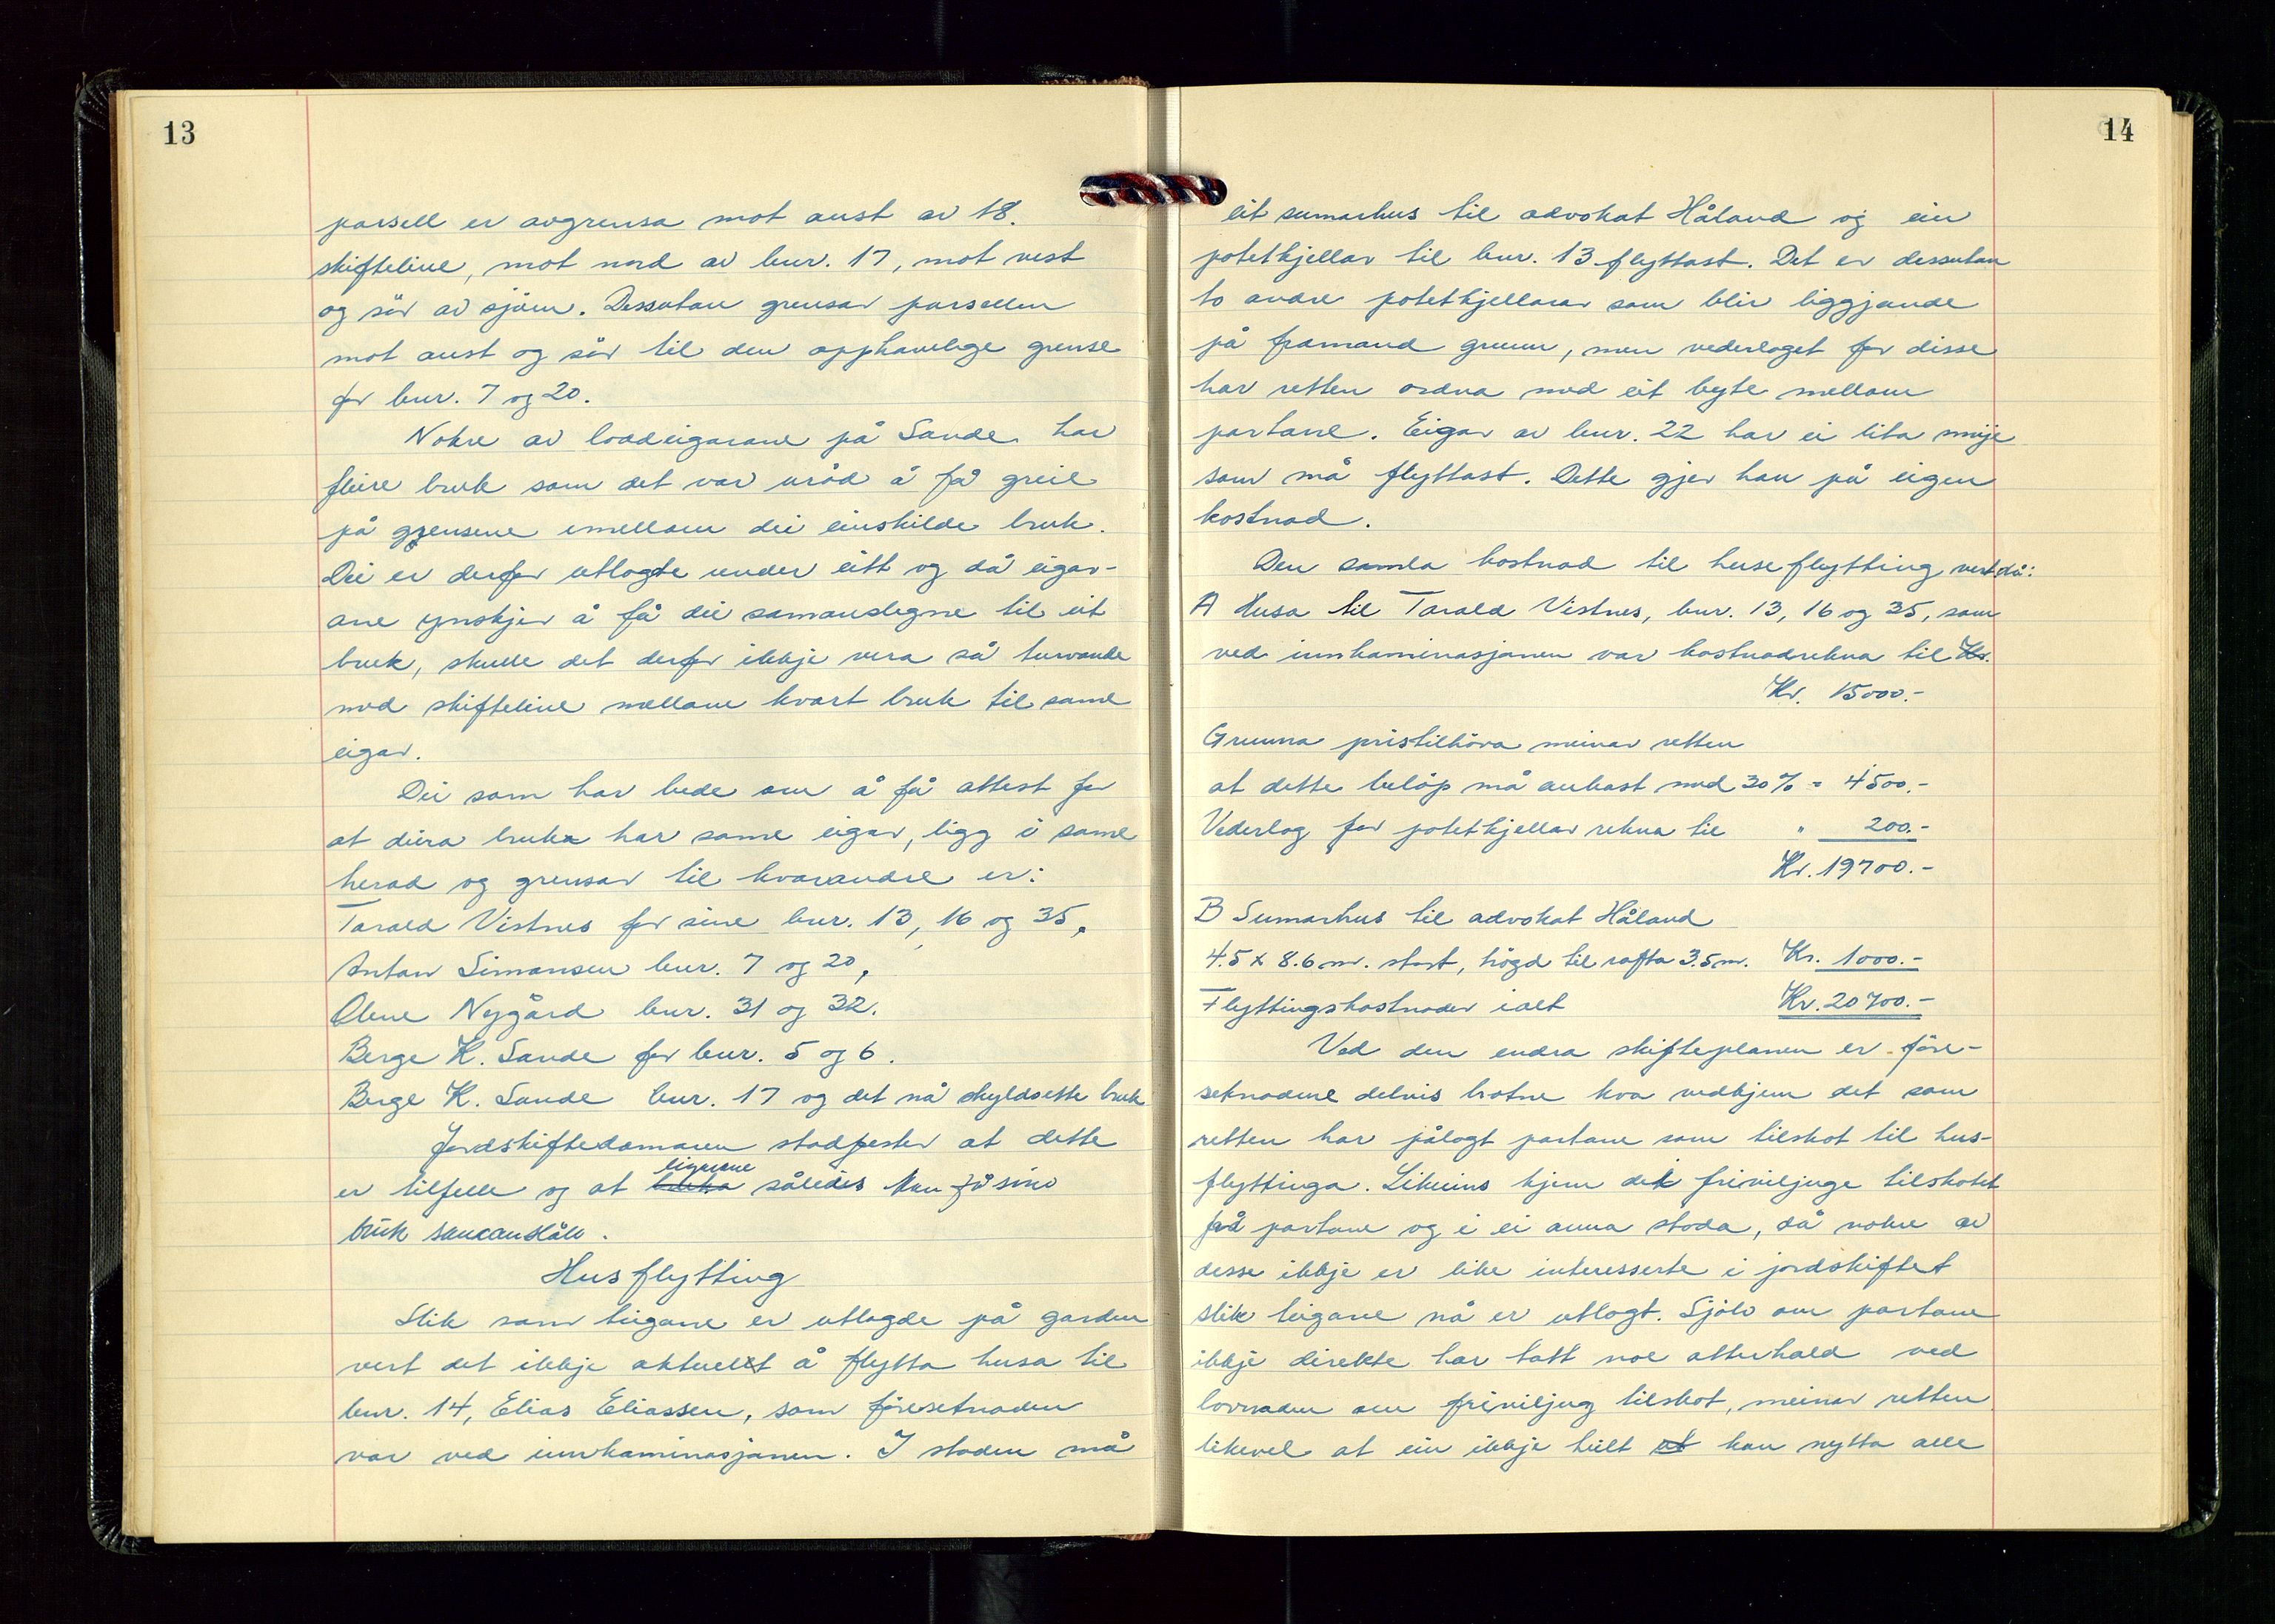 13
parsell er avgrensa mot aust av 18.
skifteline, mot nord av bnr. 17, mot vest
og sör av sjöen. Dessutan grensar parsellen
mot aust og sör til den opphavlege grense
for bnr. 7 og 20.
Nokre av loddeigarane på Sande har
fleire bruk som det var uråd å få greie
på grensene imellom dei einskilde bruk.
Dei er derfor utlagde under eitt og då eigar-
ane ynskjer å få dei samanslegne til eit
bruk, skulle det derfor ikkje vera så turvande
med skifteline mellom kvart bruk til same
eigar.
Dei som har bede om å få attest for
at deira bruka har same eigar, ligg i same
herad og grensar til kvarandre er:
Tarald Vistnes for sine bnr. 13, 16 og 35,
Anton Simonsen bnr. 7 og 20,
Olene Nygård bnr. 31 og 32.
Berge K. Sande for bnr. 5 og 6.
Berge K. Sande bnr. 17 og det nå skyldsette bruk
Jordskiftedomaren stadfester at dette
eigarane
er tilfelle og at bruka således kan få sine
bruk samanslått.
Husflytting
Slik som teigane er utlagde på garden
vert det ikkje aktuelt å flytta husa til
bnr. 14, Elias Eliassen, som föresetnaden
var ved innkaminasjonen. I staden må
14
eit sumarhus til advokat Håland og ein
potetkjellar til bnr. 13 flyttast. Det er dessutan
to andre potetkjellarar som blir liggjande
på framand grunn, men vederlaget for disse
har retten ordna med eit byte mellom
partane. Eigar av bnr. 22 har ei lita smije
som må flyttast. Dette gjer han på eigen
kostnad.
Den samla kostnad til huseflytting vert då:
A Husa til Tarald Vistnes, bnr. 13, 16 og 35, som
ved innkaminasjonen var kostnadrekna til Kr.
Kr. 15000.-
Grunna pristilhöva meinar retten
at dette belöp må aukast med 30% = 4500.-
Vederlag for potetkjellar rekna til " 200.-
Kr. 19700.-
B Sumarhus til advokat Håland
4.5 x 8.6 m. stort, högd til rafta 3.5 m. Kr. 1000.-
Flyttingskostnader ialt Kr. 20700.-
Ved den endra skifteplanen er före-
setnadene delvis brotne kva vedkjem det som
retten har pålagt partane som tilskot til hus-
flyttinga. Likeeins kjem dei friviljuge tilskotet
frå partane og i ei anna stoda, då nokre av
desse ikkje er like interesserte i jordskiftet
slik teigane nå er utlagt. Sjölv om partane
ikkje direkte har tatt noe atterhald ved
lovnaden om friviljug tilskot, meinar retten
likevel at ein ikkje heilt ut kan nytta alle